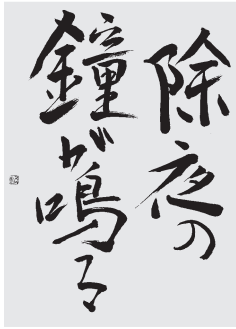 除夜の
鐘が鳴る